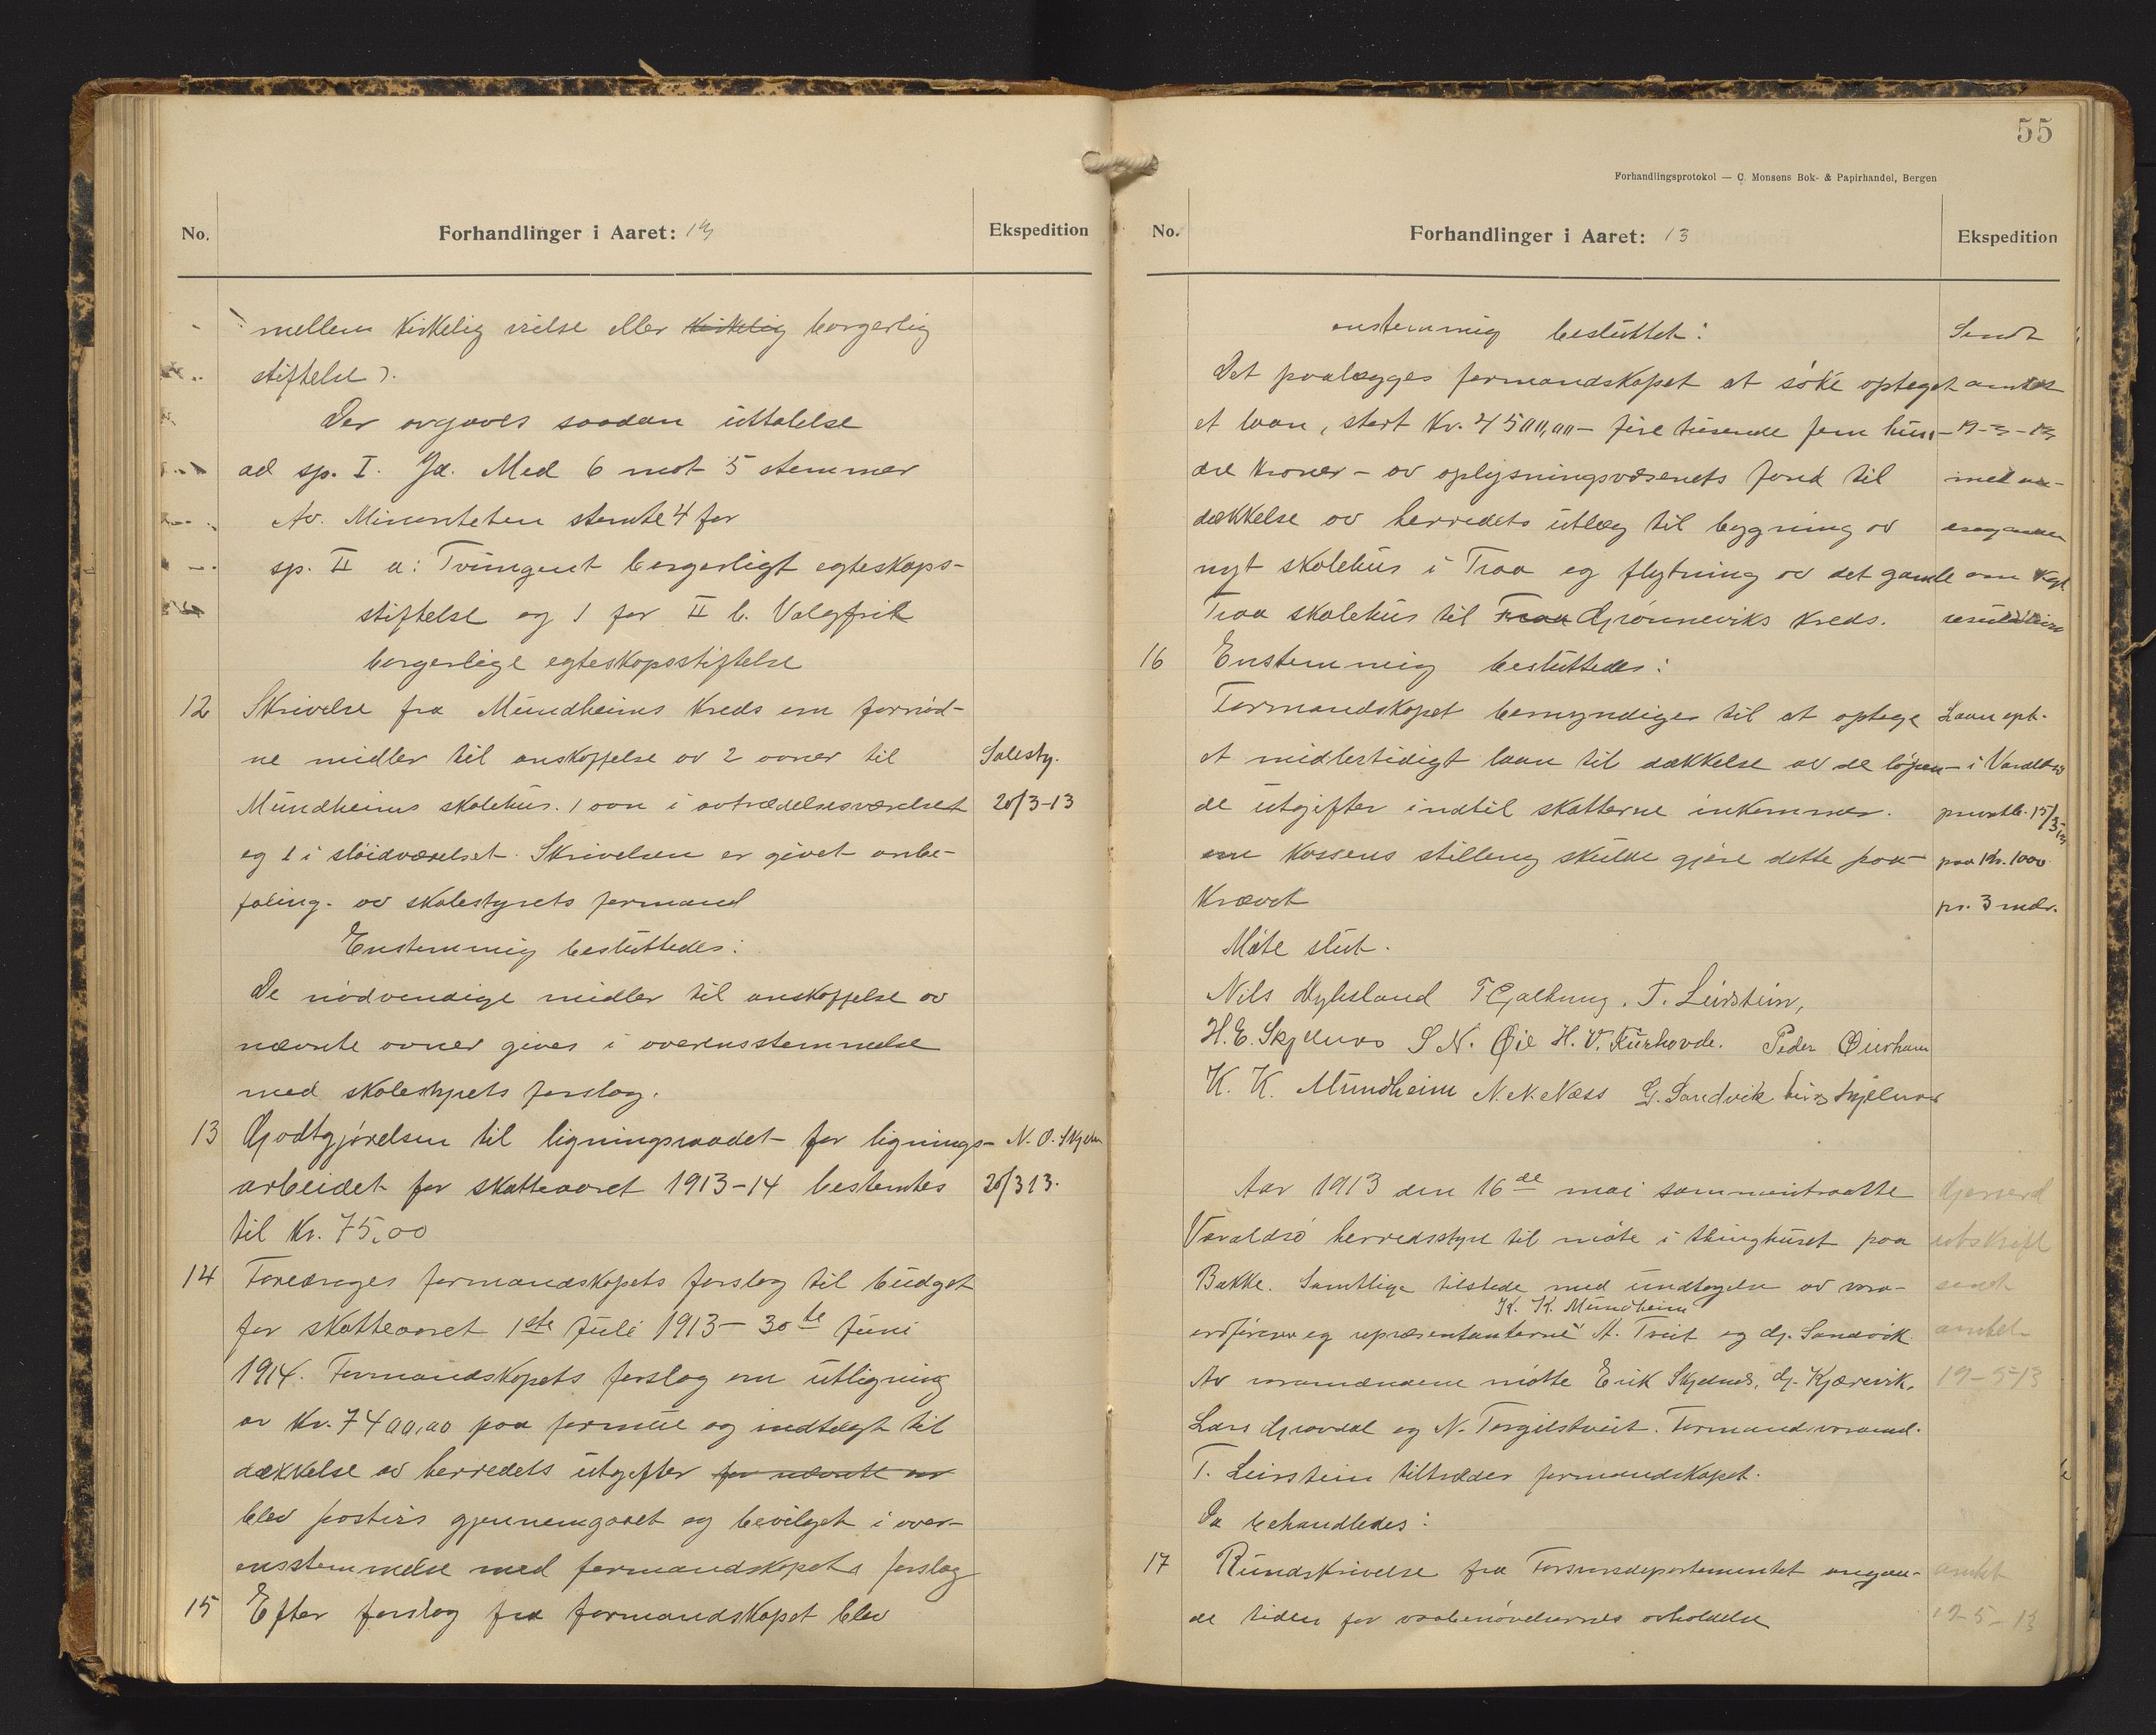 No.
Forhandlinger i Aaret: 13
Ekspedition
mellem kirkelig vielse eller kirkelig borgerlig
stiftelse).
Der avgaves saadan uttalelse
ad sp. I. Ja. Med 6 mot 5 stemmer
Av. Minoriteten stemte 4 for
sp. II a: Tvungent borgerligt egteskaps-
stiftelse og 1 for II b. Valgfrit
borgerlige egteskapsstiftelse
12 Skrivelse fra Mundheims kreds om fornød-
ne midler til anskaffelse av 2 ovner til
Mundheims skolehus. 1 ovn i avtrædelsesværelset
og 1 i sløidværelset. Skrivelsen er givet anbe-
faling. av skolestyrets formand
Enstemmig besluttedes:
De nødvendige midler til anskaffelse av
nævnte ovner gives i overensstemmelse
med skolestyrets forslag.
Solesty.
20/3-13
13 Godtgjørelsen til ligningsraadet for lignings-
arbeidet for skatteaaret 1913-14 bestemtes
til Kr. 75,00
N. O. Skjeln
20/3 13.
14 Foredrages formandskapets forslag til budget
for skatteaaret 1ste Juli 1913 - 30te Juni
1914. Formandskapets forslag om utligning
av Kr. 7400,00 paa formue og indtægt til
dækkelse av herredets utgifter for nævnte aar
blev postvis gjennemgaaet og bevilget i over-
ensstemmelse med formandskapets forslag
15 Efter forslag fra formandskapet blev
55
Forhandlingsprotokol — C. Monsens Bok- & Papirhandel, Bergen
No.
Forhandlinger i Aaret: 13
Ekspedition
enstemmig besluttet:
Det paalægges formandskapet at søke optaget
et laan, stort Kr. 4500,00 - fire tusende fem hun-
dre kroner - av oplysningsvæsenets fond til
dækkelse av herredets utlæg til bygning av
nyt skolehus i Traa og flytning av det gamle
Traa skolehus til Traa Grønneviks kreds.
Sendt
amtet
19-3-13
med an-
om kgl
16 Enstemmig besluttedes:
Formandskapet bemyndiges til at optage
et midlertidigt laan til dækkelse av de løpen-
de utgifter indtil skatterne inkommer.
om kassens stilling skulde gjøre dette paa-
krævet
Laan opt.
i Varaldsø
privatb. 15/3 13
paa Kr. 1000
pr. 3 mdr.
Møte slut.
Nils Hylesland T Gjallung. T. Leirstein,
H. E. Skjelnes S N. Øie H. V. Furhovde. Peder Øierhavn
K. K. Mundheim N. N. Næss G. Sandvik Skjelnes
Aar 1913 den 16de mai sammentraatte
Varaldsø herredsstyre til møte i thinghuset paa
Bakke. Samtlige tilstede med undtagelse av vara-
K. K. Mundheim
ordfører og repræsentanterne A. Tveit og G. Sandvik.
Av varamændene møtte Erik Skjelnes, G. Kjærevik,
Lars Gravdal og N. Torgilstveit. Formand. varamd.
T. Leirstein tiltræder formandskapet.
Da behandledes:
Gjenerd
utskrift
sendt
amtet
19-5-13
17 Rundskrivelse fra Forsvarsdepartementet angaa-
de tiden for vaabenøvelsernes avholdelse
amtet
19-5-13